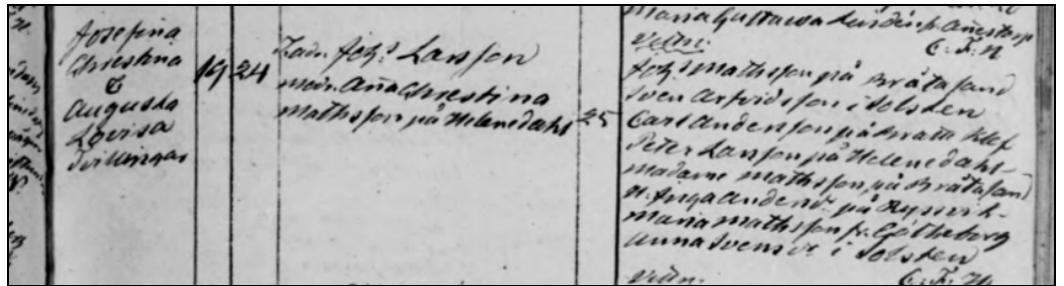 Josefina
Christina
&
Augusta
Lovisa
tvillingar
19 24
Fadr. Johs Larsson
modr. Anna Christina
Mathsson på Helenedahl
25
Maria Gustawa Lindén fr.
C. F. H
Vittn:
Johs Mathsson på Bråtasand
Sven Arfvidsson i Solsten
Carl Anderson på Bratte Klef
Peter Larsson på Helenedahl
Madame Mathsson på Bråtasand
H. Inga Andersdr på
Maria Mathsson fr. Götheborg
Anna Svensdr i Solsten
Vittn:
C. F. H